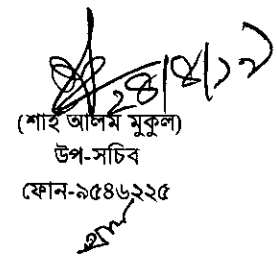 ২৪/৪/১৭
(শাহ আলম মুকুল)
উপ-সচিব
ফোন-৯৫৪৬২২৫